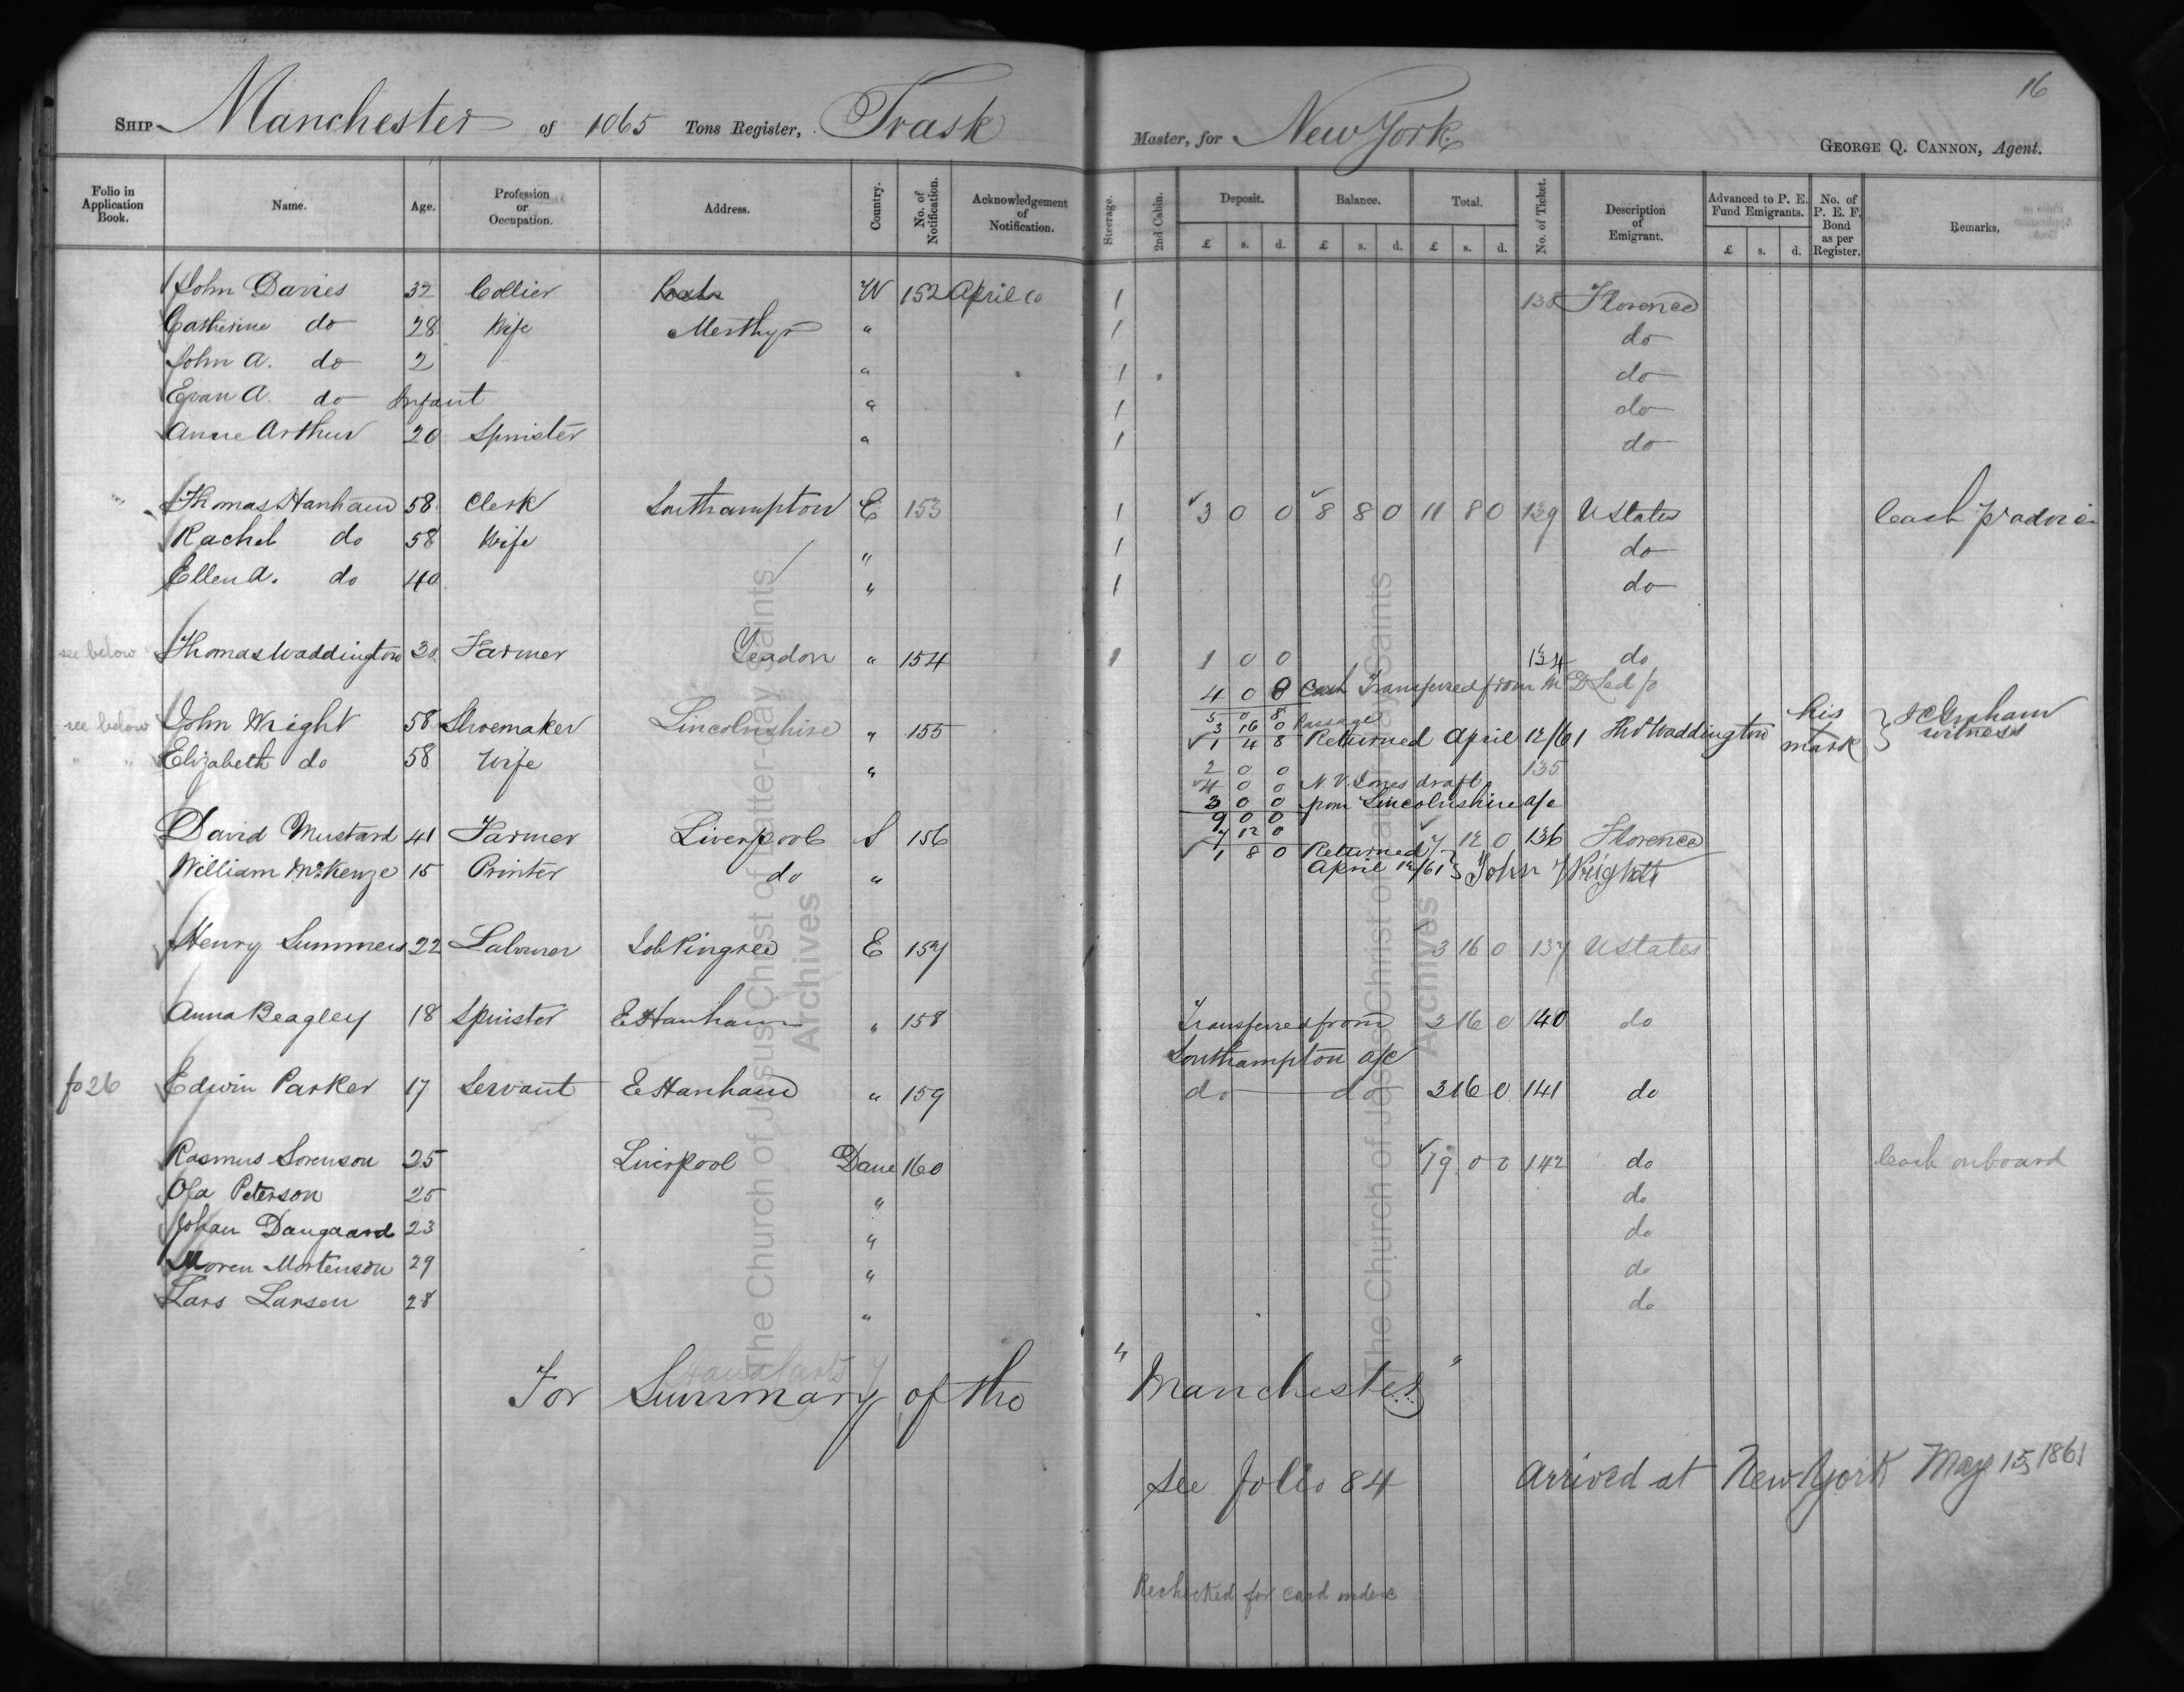 16
SHIP Manchester of 1065 Tons Register, Trask Master, for New York GEORGE Q. CANNON, Agent.
Folio in Application Book. Name. Age. Profession or Occupation. Address. Country. No. of Notification. Acknowledgement of Notification. Steerage. 2nd Cabin. Deposit. Balance. Total. No. of Ticket. Description of Emigrant. Advanced to P. E. Fund Emigrants. No. of P. E. F. Bond as per Register. Remarks.
£ s. d. £ s. d. £ s. d. £ s. d.
John Davies 32 Collier W 152 April 10 1 138 Florence
Catherine do 28 Wife Merthyr " 1 do
John A. do 2 " 1 do
Evan A. do Infant " 1 do
Anne Arthur 20 Spinister " 1 do
Thomas Hanham 58 Clerk Southampton E 153 1 3 0 0 8 8 0 11 8 0 139 U States Cash
Rachel do 58 Wife " 1 do
Ellen A. do 40 " 1 do
see below Thomas Waddington 30 Farmer Yeadon " 154 1 1 0 0 134 do
4 0 8 Cash Transferred from
5 0 8
see below John Wright 58 Shoemaker Lincolnshire " 155 3 16 0 Passage
1 4 8 Returned April 12/61 Thos Waddington his mark witness
" " Elizabeth do 58 Wife " 2 0 0 135
4 0 0 N. V. Jones draft
3 0 0 from Lincolnshire a/c
9 0 0
David Mustard 41 Farmer Liverpool S 156 7 12 0 7 12 0 136 Florence
1 8 0 Returned
William McKenze 15 Printer do " April 12/61 John Wright
Henry Summers 22 Labourer Job Pingree E 157 3 16 0 137 U States
Anna Beagley 18 Spinister E Hanham " 158 Transferred from 3 16 0 140 do
Southampton a/c
fo 26 Edwin Parker 17 Servant E Hanham " 159 do do 3 16 0 141 do
Rasmus Sorenson 25 Liverpool Dane 160 19 0 0 142 do Cash onboard
Ola Peterson 25 " do
Johan Daugaard 23 " do
Moren Mortenson 29 " do
Lars Larsen 28 " do
For Summary of the "Manchester"
see folio 84 Arrived at New York May 15, 1861
Rechecked for card index
The Church of Jesus Christ of Latter-day Saints
Archives
The Church of Jesus Christ of Latter-day Saints
Archives